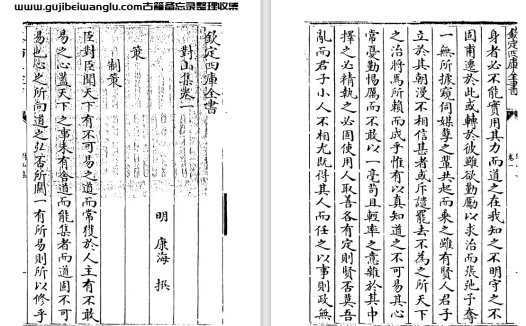 www.gujibeiwanglu.com古籍备忘录整理收集
欽定四庫全書
對山集卷一
明 康海 撰
策
制策
臣對臣聞天下有不可易之道而常獲於人主有不敢
易之心蓋天下之事未有舍道而能集者而道固不可
易也心之所向道之弘否所關一有所易則所以修乎
欽定四庫全書
卷一
身者必不能實用其力而道之在我知之不明守之不
固甫遷於此或轉於彼雖欲勤勵以求治而張弛予奪
一無所據窺伺媒孽之輩共起而乘之雖有賢人君子
立於其朝漫不相信甚者或斥譴罷去不為之所天下
之治將焉所賴而成乎惟有以真知道之不可易其心
常憂勤惕厲而不敢以一毫苟且輕率之意雜於其中
擇之必精執之必固使用人取善各有定則賢否莫吾
亂而君子小人不相尤既得其人而任之以事則政無